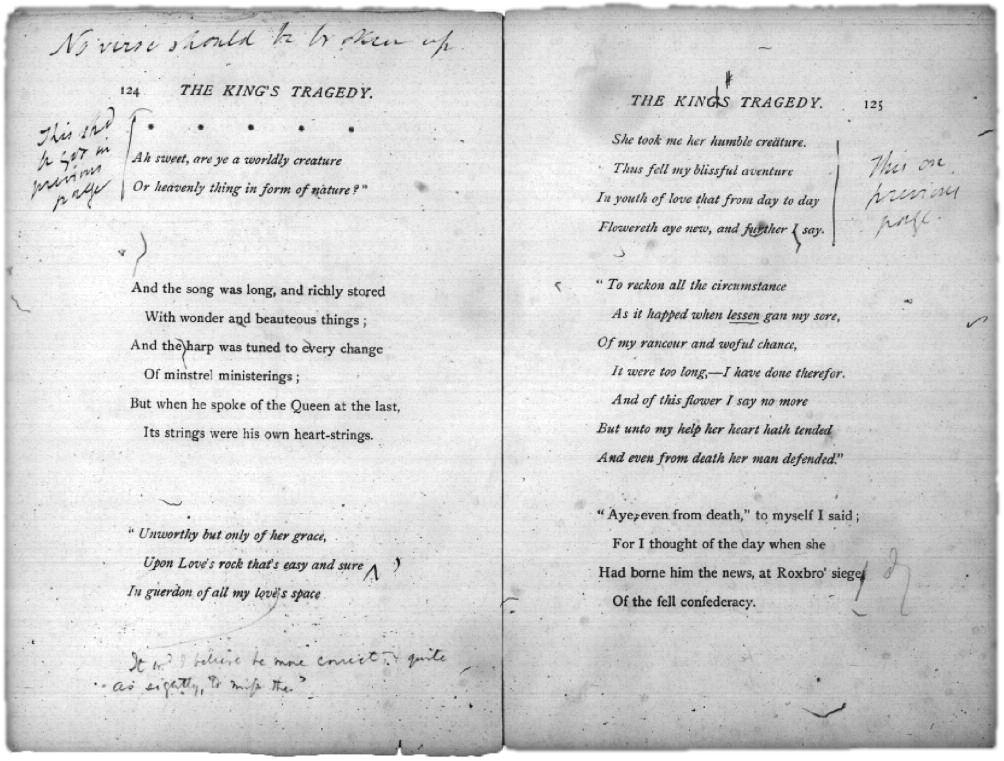 No verse should be broken up
124 THE KING'S TRAGEDY.
This shd
be got in
previous
page
* * * * *
Ah sweet, are ye a worldly creature
Or heavenly thing in form of nature?"
And the song was long, and richly stored
With wonder and beauteous things;
And the harp was tuned to every change
Of minstrel ministerings;
But when he spoke of the Queen at the last,
Its strings were his own heart-strings.
"Unworthy but only of her grace,
Upon Love's rock that's easy and sure
In guerdon of all my love's space
It wd I believe be more correct, & quite
as sightly, to miss the "
THE KING'S TRAGEDY. 125
She took me her humble creäture.
Thus fell my blissful aventure
In youth of love that from day to day
Flowereth aye new, and further I say.
This on
previous
page.
"To reckon all the circumstance
As it happed when lessen gan my sore,
Of my rancour and woful chance,
It were too long,—I have done therefor.
And of this flower I say no more
But unto my help her heart hath tended
And even from death her man defended."
"Aye, even from death," to myself I said;
For I thought of the day when she
Had borne him the news, at Roxbro' siege
Of the fell confederacy.